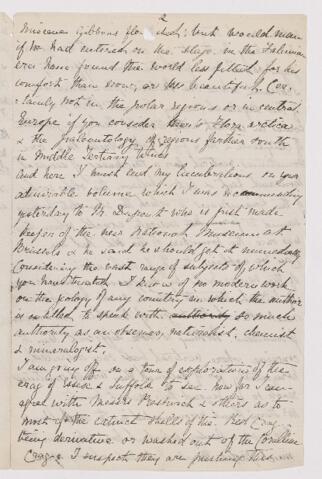 2
Miocene Gibbons flourished; but would man
if he had entered on the stage in the Falunian
era have found the world less fitted for his
comfort than now, or less beautiful. Cer-
tainly not in the polar regions or in central
Europe if you consider Heer's Flora arctica
& the palaeontology of regions farther south
in Middle Tertiary times
And here I must end my lucubrations on your
admirable volume which I was recommending
yesterday to M. Dupont who is just made
keeper of the new National Museum at
Brussels & he said he should get it immediately
Considering the vast range of subjects of which
you have treated I know of no modern work
on the geology of any country in which the author
is entitled to speak with authority so much
authority as an observer, naturalist, chemist
& mineralogist.
I am going off on a tour of exploration of the
crag of Essex & Suffolk to see how far I can
agree with Messrs Prestwich & others as to
most of the extinct shells of the Red Crag
being derivative or washed out of the Coralline
Crag. I suspect they are pushing this